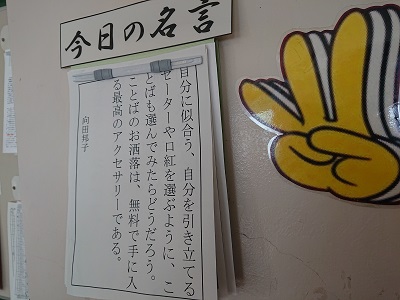 今日の名言
自分に似合う、自分を引き立てる
セーターや口紅を選ぶように、こ
とばも選んでみたらどうだろう。
ことばのお洒落は、無料で手に入
る最高のアクセサリーである。
向田邦子